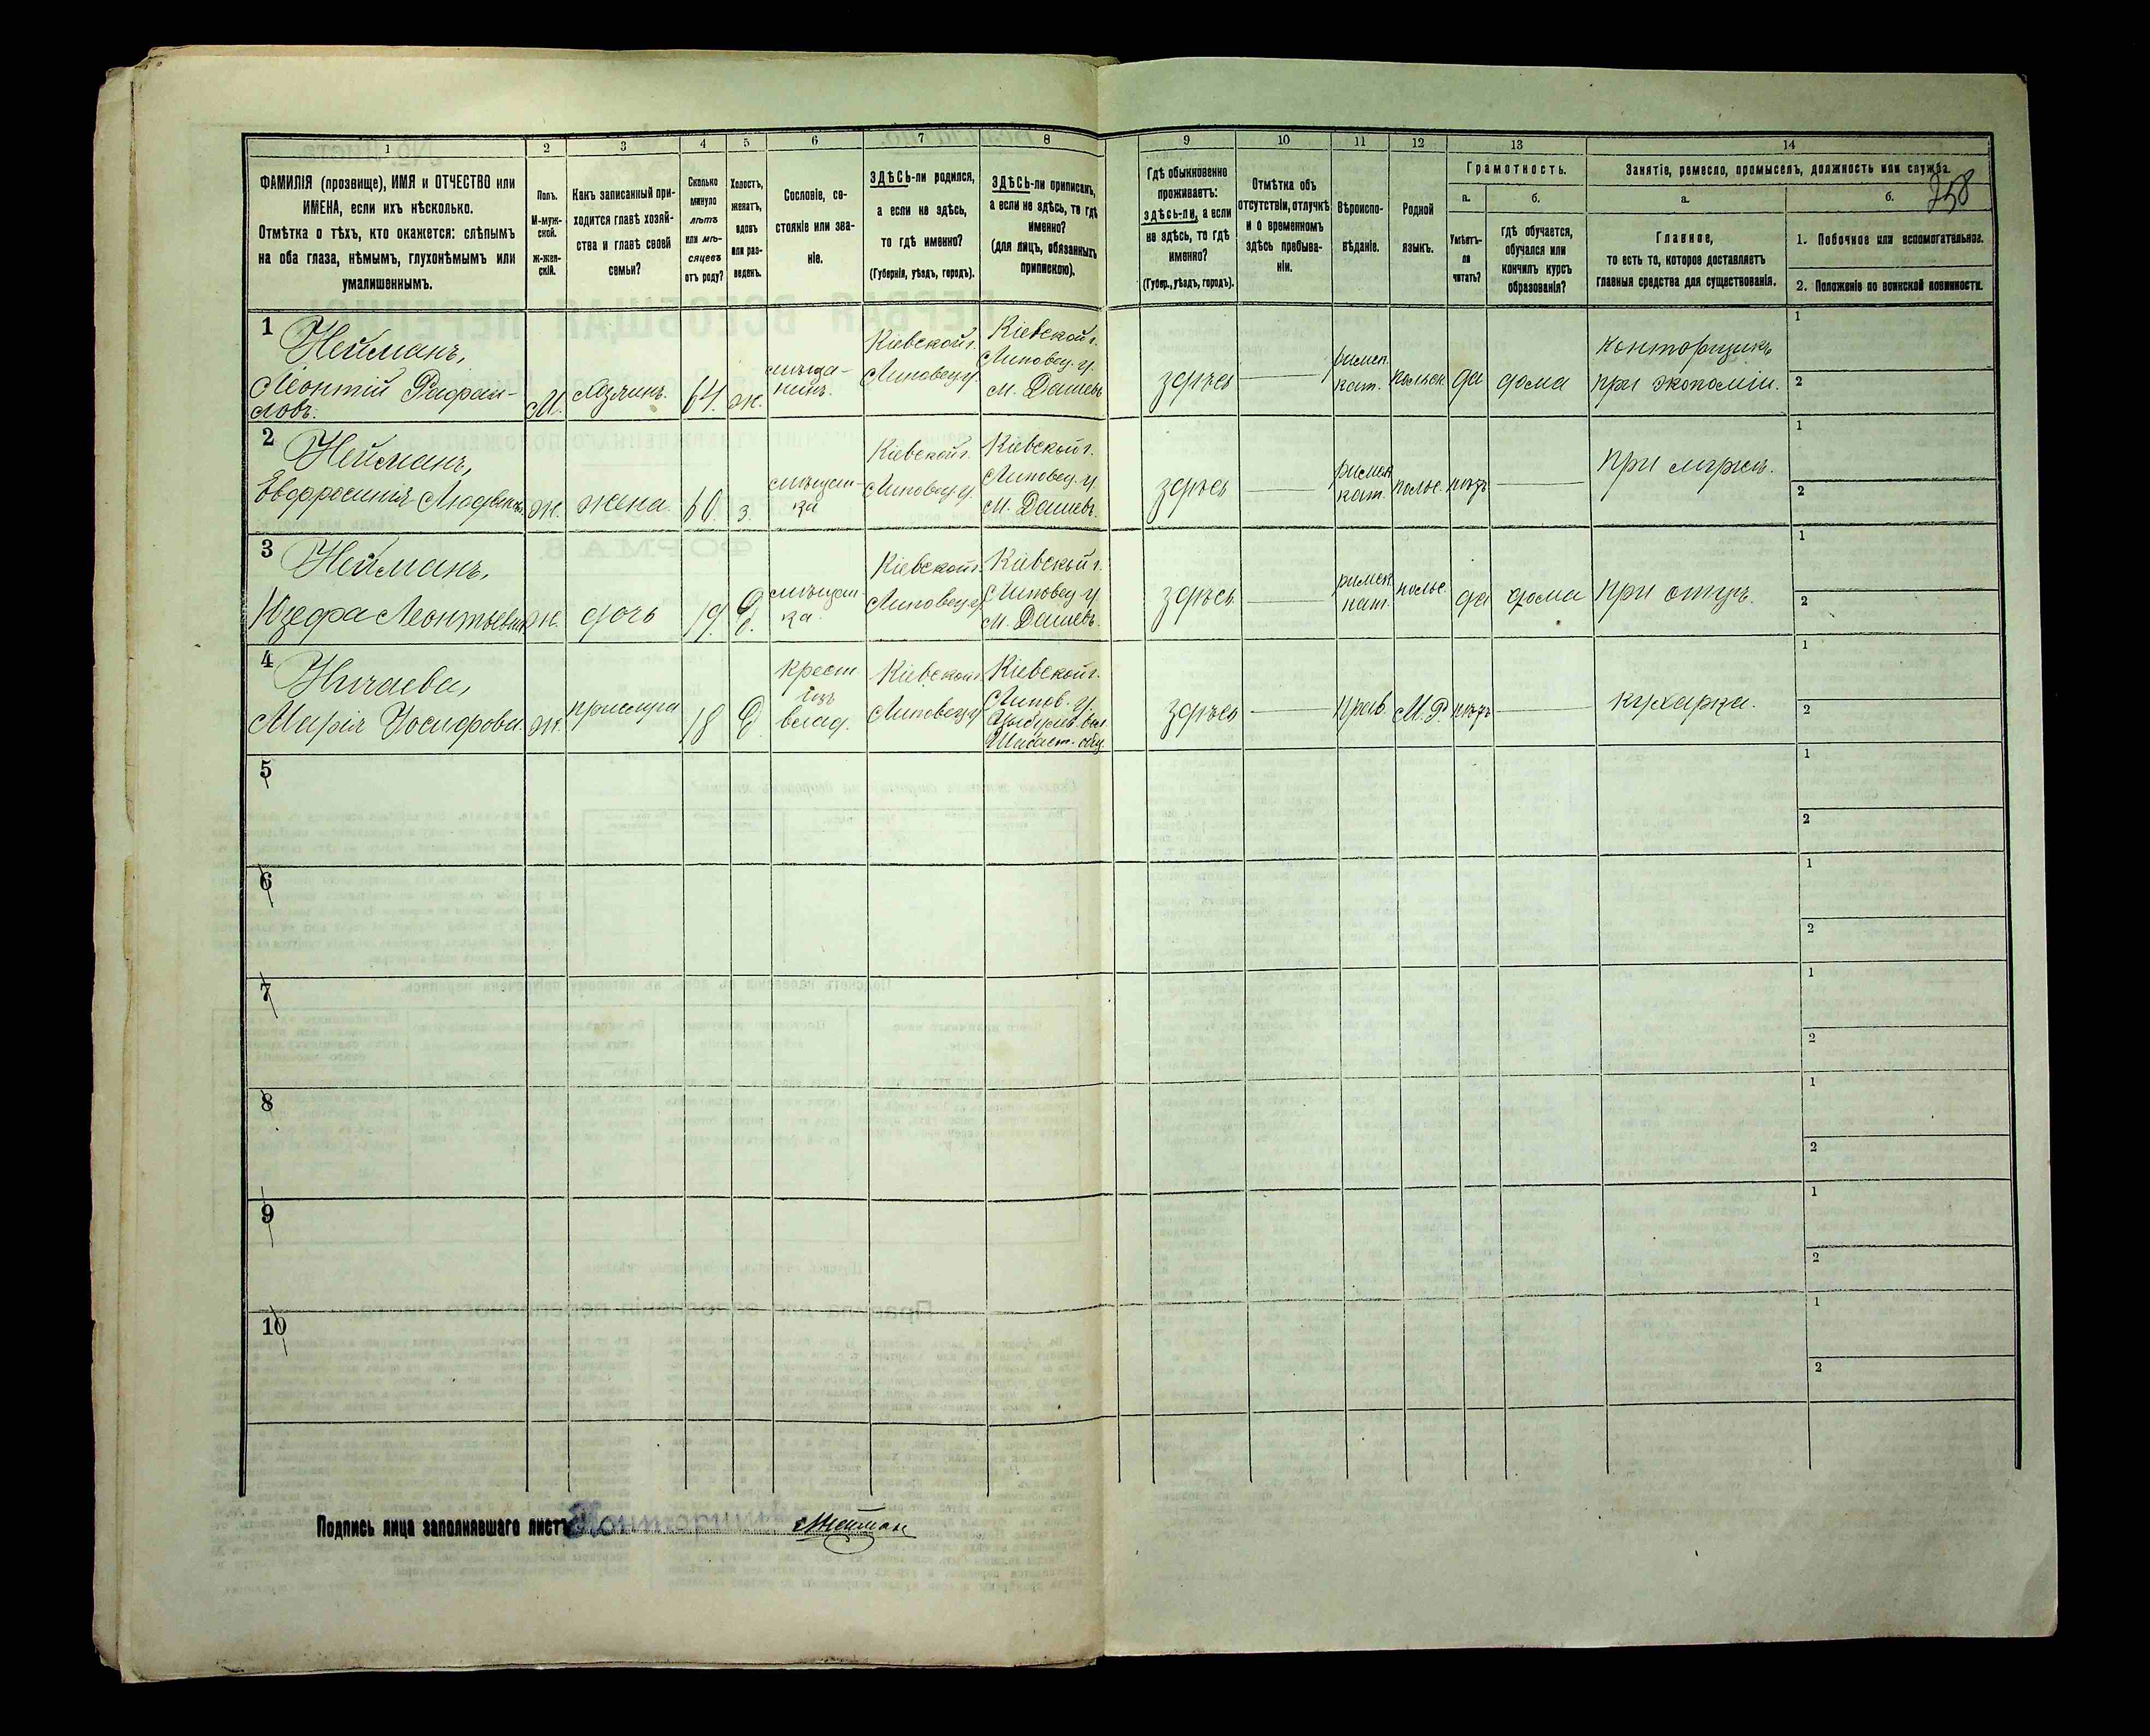 1 2 3 4 5 6 7 8 9 10 11 12 13 14
ФАМИЛІЯ (прозвище), ИМЯ и ОТЧЕСТВО или
ИМЕНА, если ихъ нѣсколько.
Отмѣтка о тѣхъ, кто окажется: слѣпымъ
на оба глаза, нѣмымъ, глухонѣмымъ или
умалишеннымъ.
Полъ.
М-муж-
ской.
Ж-жен-
скій.
Какъ записанный при-
ходится главѣ хозяй-
ства и главѣ своей
семьи?
Сколько
минуло
лѣтъ
или мѣ-
сяцевъ
отъ роду?
Холостъ,
женатъ,
вдовъ
или раз-
веденъ.
Сословіе, со-
стояніе или зва-
ніе.
ЗДѢСЬ-ли родился,
а если не здѣсь,
то гдѣ именно?
(Губернія, уѣздъ, городъ).
ЗДѢСЬ-ли приписанъ,
а если не здѣсь, то гдѣ
именно?
(для лицъ, обязанныхъ
припискою).
Гдѣ обыкновенно
проживаетъ:
здѣсь-ли, а если
не здѣсь, то гдѣ
именно?
(Губер., уѣздъ, городъ).
Отмѣтка объ
отсутствіи, отлучкѣ
и о временномъ
здѣсь пребыва-
ніи.
Вѣроиспо-
вѣданіе.
Родной
языкъ.
Грамотность.
а.
Умѣетъ-
ли
читать?
б.
Гдѣ обучается,
обучался или
кончилъ курсъ
образованія?
Занятіе, ремесло, промыселъ, должность или служба.
358
а.
Главное,
то есть то, которое доставляетъ
главныя средства для существованія.
б.
1. Побочное или вспомогательное.
2. Положеніе по воинской повинности.
1
Нейманъ,
Леонтій Рафаи-
ловъ.
М.
хозяинъ.
64.
ж.
мѣща-
нинъ.
Кіевской г.
Липовец. у.
Кіевской г.
Липовец. у.
м. Дашевъ
здѣсь
римск.
кат.
польск.
да
дома
конторщикъ
при экономіи.
1
2
2
Нейманъ,
Евфросинія
ж.
жена.
60.
з.
мѣщан-
ка
Кіевской г.
Липовец. у.
Кіевской г.
Липовец. у.
м. Дашевъ.
здѣсь
римск.
кат.
польс.
нѣтъ
при мужѣ.
1
2
3
Нейманъ,
Юзефа Леонтьевна
ж.
дочь
19.
д.
мѣщан-
ка
Кіевской г.
Липовец. у.
Кіевской г.
Липовец. у.
м. Дашевъ
здѣсь
римск.
кат.
польс.
да
дома
при отцѣ.
1
2
4
Ничаева,
Марія Іосифова.
ж.
прислуга
18
д.
крест.
изъ
влад.
Кіевской г.
Липовец. у.
Кіевской г.
Липов. у.
здѣсь
прав.
М. Р.
нѣтъ
кухарка.
1
2
5
1
2
6
1
2
7
1
2
8
1
2
9
1
2
10
1
2
Подпись лица заполнявшаго листъ
Нейман